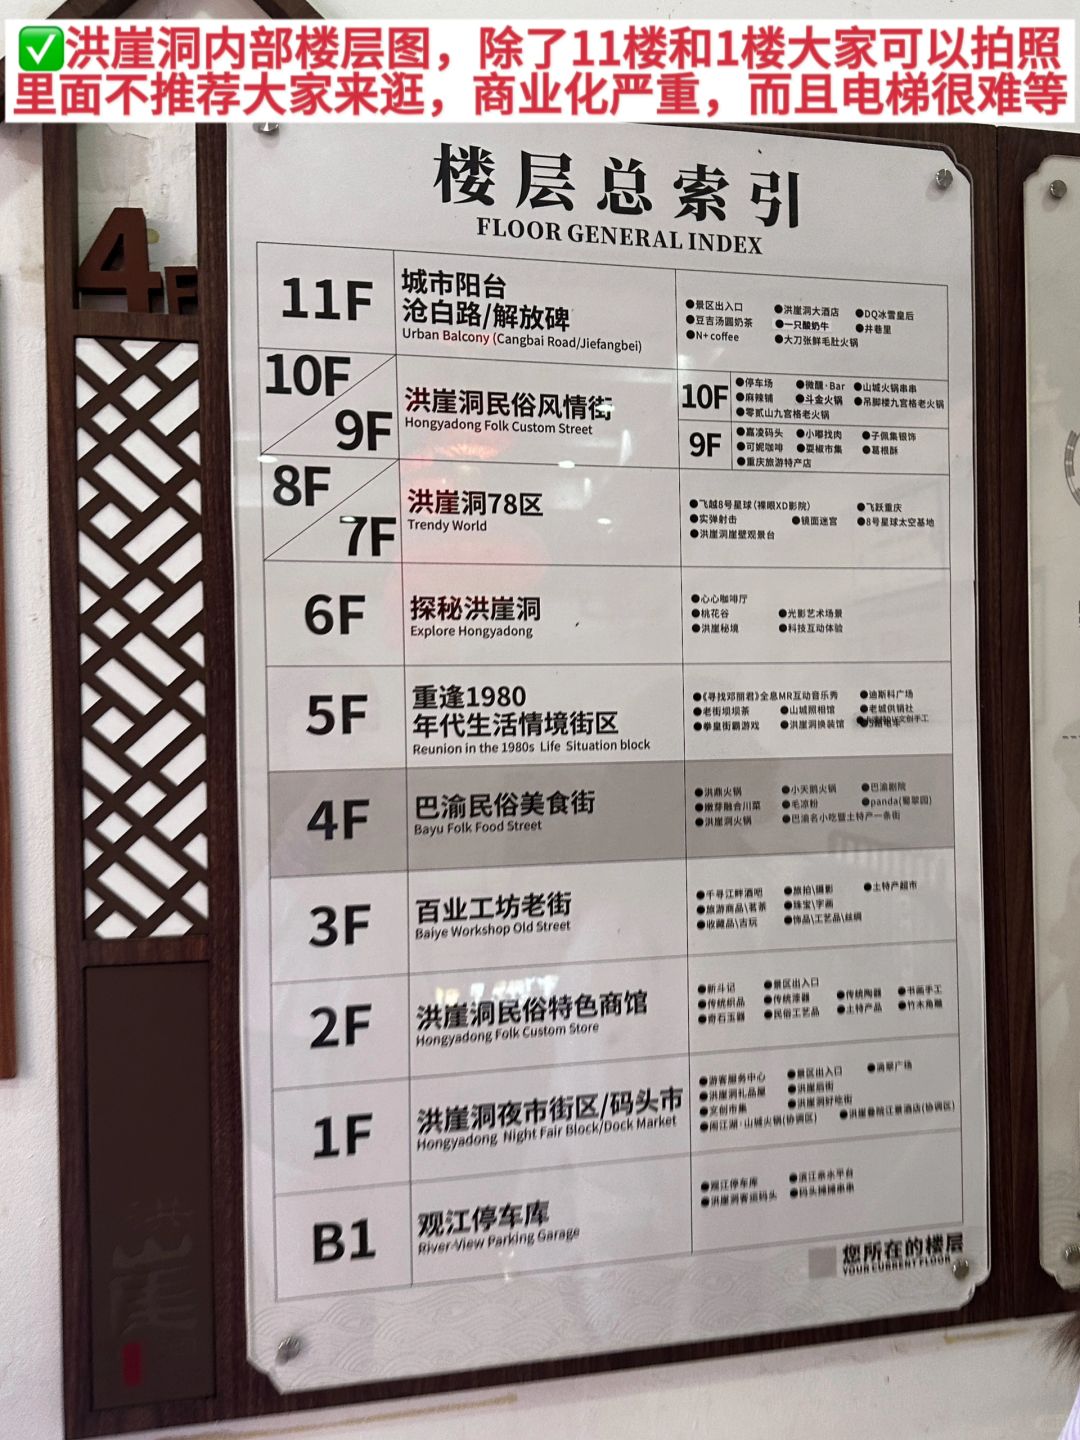 ✅洪崖洞内部楼层图，除了11楼和1楼大家可以拍照
里面不推荐大家来逛，商业化严重，而且电梯很难等
4F
楼层总索引
FLOOR GENERAL INDEX
11F
城市阳台
沧白路/解放碑
Urban Balcony (Cangbai Road/Jiefangbei)
●景区出入口 ●洪崖洞大酒店 ●DQ冰雪皇后
●豆吉汤圆奶茶 ●一只酸奶牛 ●井巷里
●N+coffee ●大刀张鲜毛肚火锅
10F
9F
洪崖洞民俗风情街
Hongyadong Folk Custom Street
10F
●停车场 ●微醺·Bar ●山城火锅串串
●麻辣铺 ●斗金火锅 ●吊脚楼九宫格老火锅
●零贰山九宫格老火锅
9F
●嘉凌码头 ●小嘟找肉 ●子佩集银饰
●可妮咖啡 ●耍椒市集 ●葛根酥
●重庆旅游特产店
8F
7F
洪崖洞78区
Trendy World
●飞越8号星球(裸眼XD影院) ●飞跃重庆
●实弹射击 ●镜面迷宫 ●8号星球太空基地
●洪崖洞崖壁观景台
6F
探秘洪崖洞
Explore Hongyadong
●心心咖啡厅
●桃花谷 ●光影艺术场景
●洪崖秘境 ●科技互动体验
5F
重逢1980
年代生活情境街区
Reunion in the 1980s Life Situation block
●《寻找邓丽君》全息MR互动音乐秀 ●迪斯科广场
●老街坝坝茶 ●山城照相馆 ●老城供销社
●拳皇街霸游戏 ●洪崖洞换装馆
4F
巴渝民俗美食街
Bayu Folk Food Street
●洪鼎火锅 ●小天鹅火锅 ●巴渝剧院
●嫩芽融合川菜 ●毛凉粉 ●panda(蜀翠园)
●洪崖洞火锅 ●巴渝名小吃暨土特产一条街
3F
百业工坊老街
Baiye Workshop Old Street
●千寻江畔酒吧 ●旅拍\摄影 ●土特产超市
●旅游商品\茗茶 ●珠宝\字画
●收藏品\古玩 ●饰品\工艺品\丝绸
2F
洪崖洞民俗特色商馆
Hongyadong Folk Custom Store
●新斗记 ●景区出入口
●传统织品 ●传统漆器 ●传统陶器 ●书画手工
●奇石玉器 ●民俗工艺品 ●土特产品 ●竹木角雕
1F
洪崖洞夜市街区/码头市
Hongyadong Night Fair Block/Dock Market
●游客服务中心 ●景区出入口 ●滴翠广场
●洪崖洞礼品屋 ●洪崖后街
●文创市集 ●洪崖洞好吃街
●闹江湖·山城火锅(协调区) ●洪崖叠院江景酒店(协调区)
B1
观江停车库
River-View Parking Garage
●观江停车库 ●滨江亲水平台
●洪崖洞客运码头 ●码头摊摊串串
您所在的楼层
YOUR CURRENT FLOOR